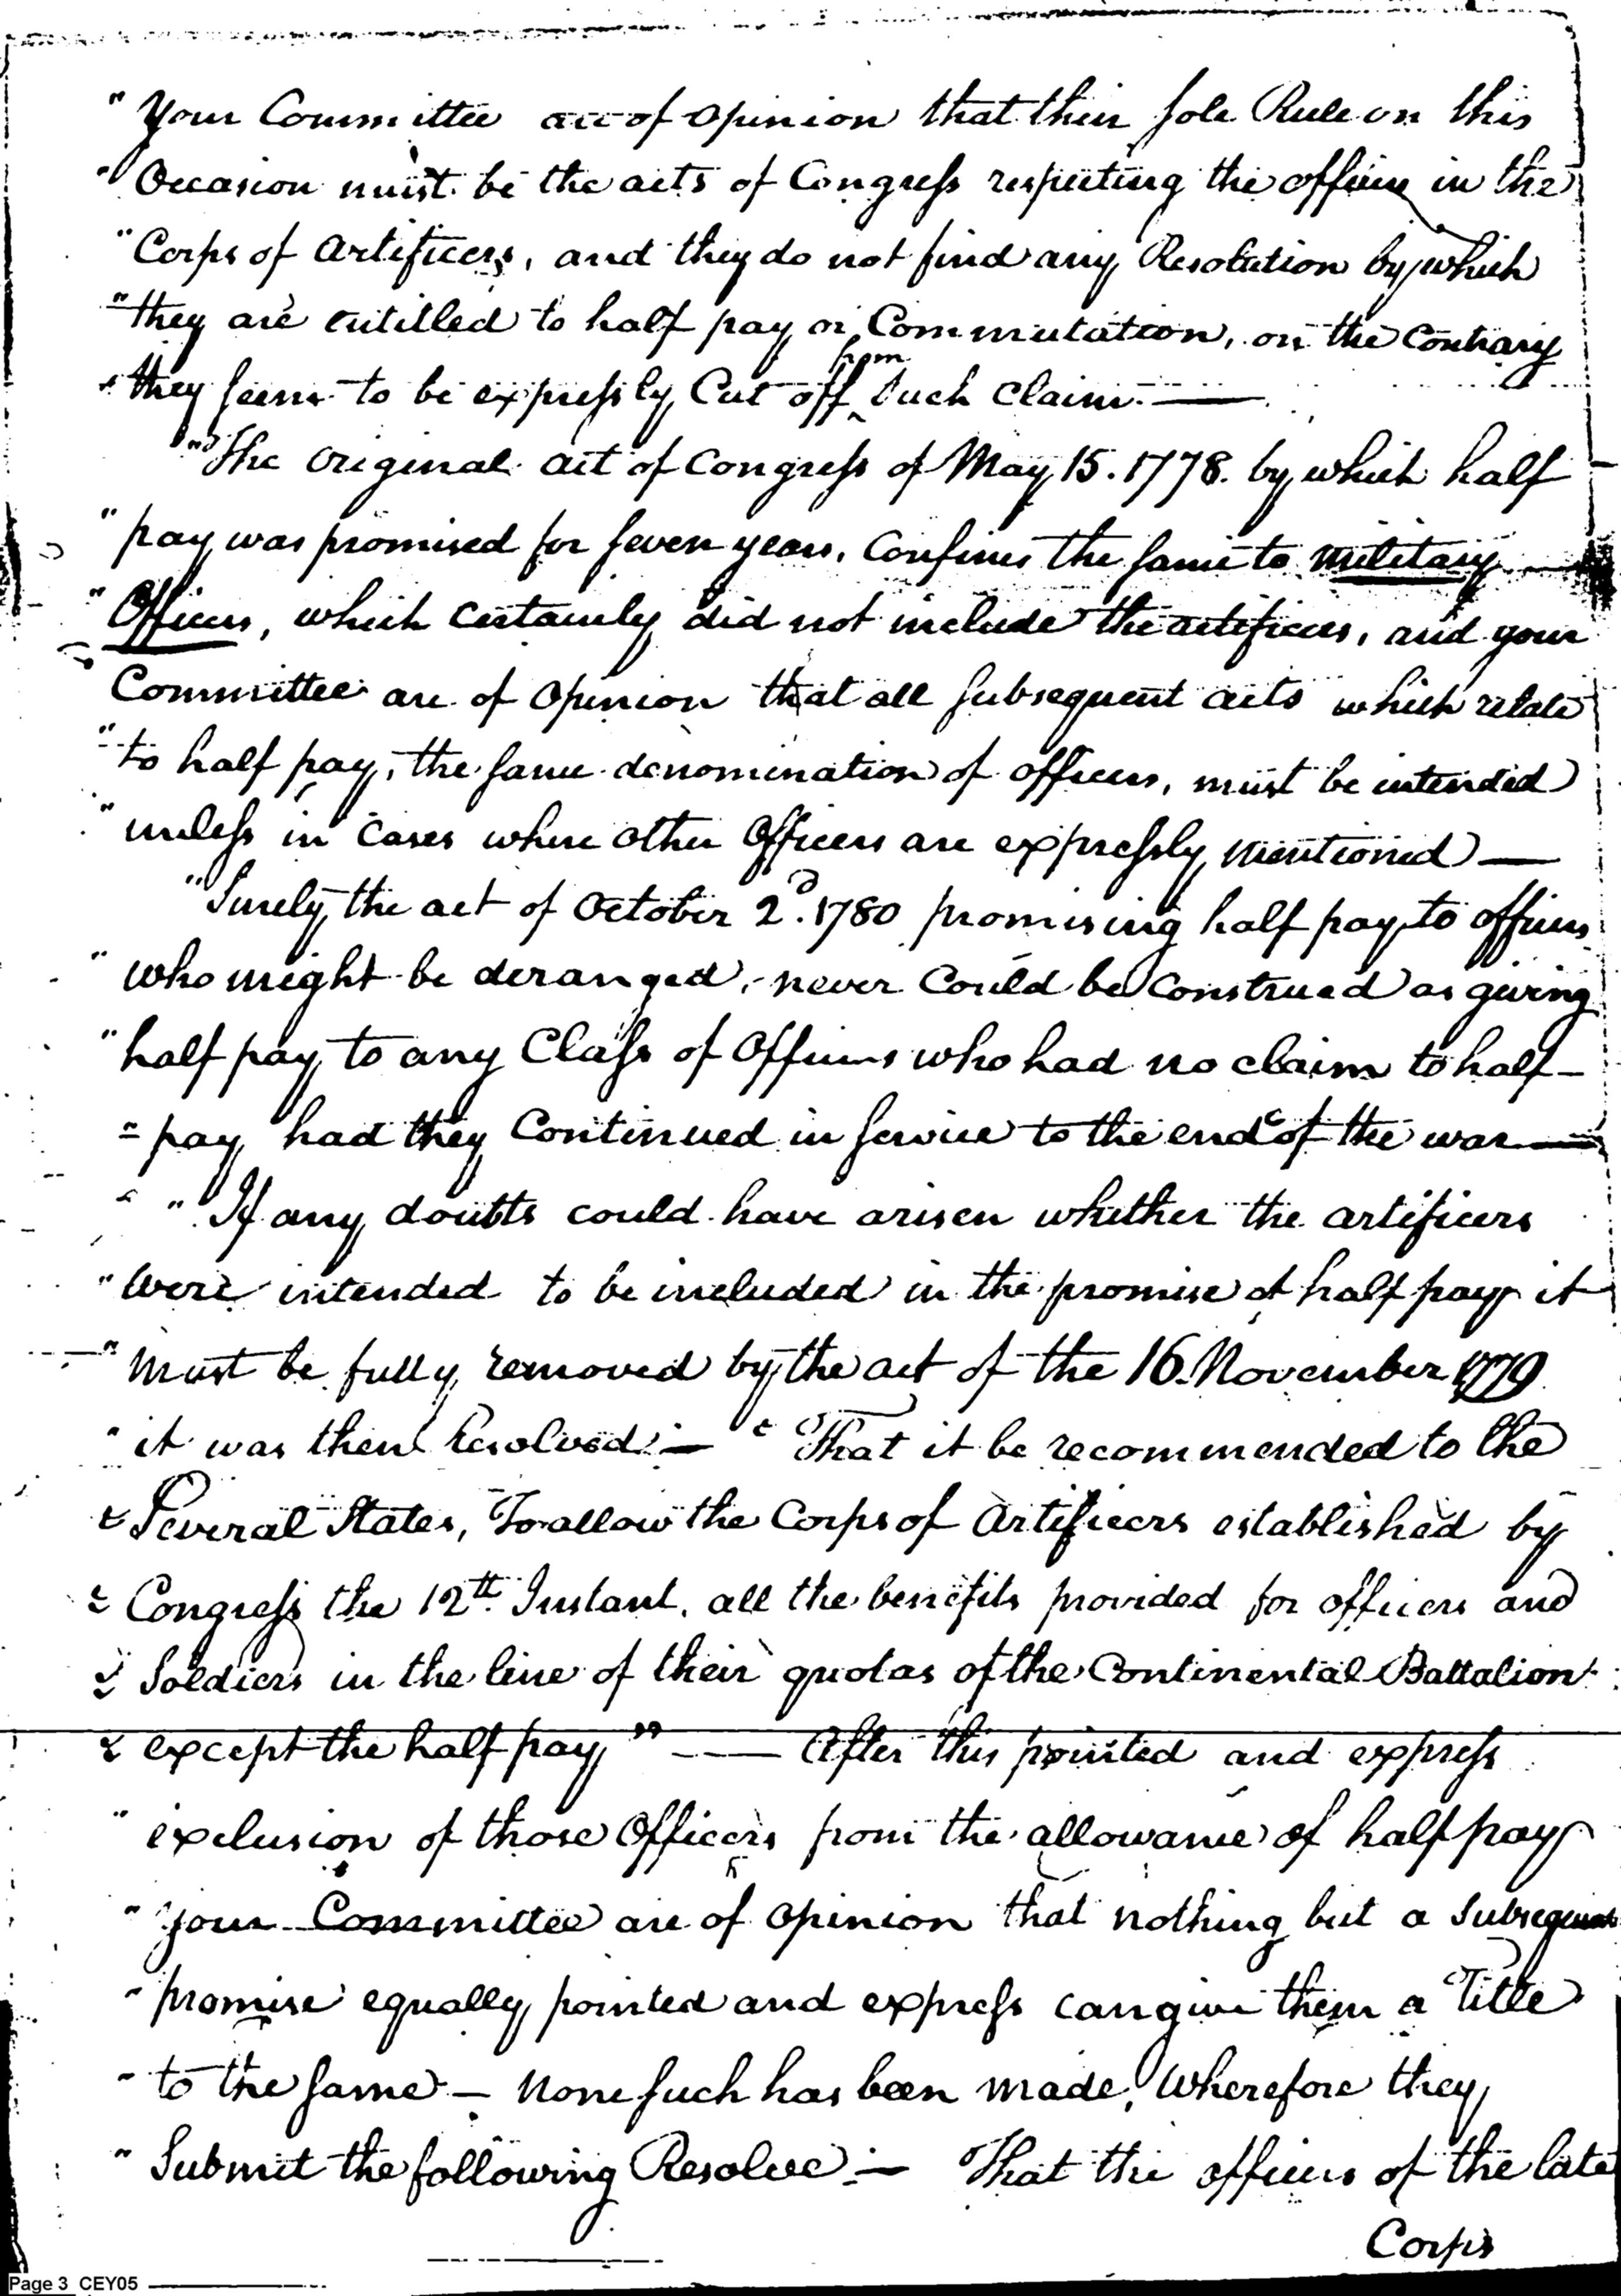 " Your Committee are of opinion that their sole Rule on this
" Occasion must be the acts of Congress respecting the officers in the
" Corps of Artificers, and they do not find any Resolution by which
" they are entitled to half pay or Commutation, on the Contrary
" they seem to be expressly Cut off from Such Claim. —
" The Original act of Congress of May 15. 1778. by which half
" pay was promised for seven years, Confines the same to military
" Officers, which Certainly did not include the artificers, and your
Committee are of Opinion that all subsequent acts which relate
" to half pay, the same denomination of officers, must be intended
" unless in Cases where other Officers are expressly mentioned —
" Surely the act of October 2d. 1780 promising half pay to officers
" who might be deranged, never Could be Construed as giving
" half pay to any Class of Officers who had no claim to half-
" pay had they Continued in service to the end of the war —
" " If any doubts could have arisen whether the artificers
" Were intended to be included in the promise of half pay it
" Must be fully removed by the act of the 16. November 1779
" it was then Resolved: — " That it be recommended to the
" Several States, To allow the Corps of Artificers established by
" Congress the 12th. Instant. all the benefits provided for officers and
" Soldiers in the line of their quotas of the Continental Battalion
" except the half pay" — After this pointed and express
" exclusion of those Officers from the allowance of half pay
" your Committee are of opinion that nothing but a Subsequent
" promise equally pointed and express can give them a Title
" to the same — None such has been made, Wherefore they
" Submit the following Resolve: — That the officers of the late
Corps
Page 3 CEY05